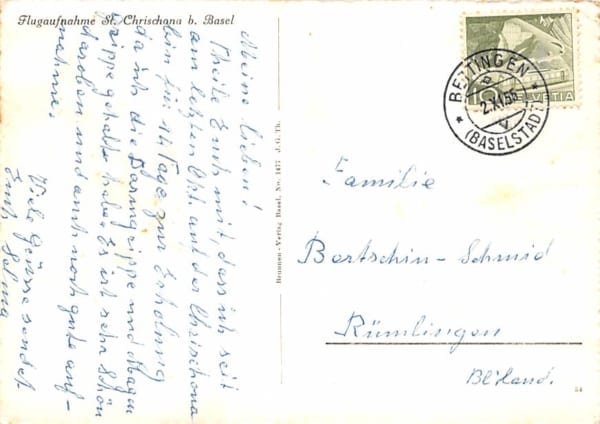 Flugaufnahme St. Chrischona b. Basel
Meine lieben!
Theile Euch mit, dass ich seit
am letzten Okt. auf der Chrischona
bin für 14 Tage zur Erholung
da ich die Darmgrippe und Magen
grippe gehabt habe. Es ist sehr schön
da oben und auch noch gute auf-
nahme.
Viele Grüsse sendet
Euch Selma
Brunnen-Verlag Basel. No. 1477 J. G. Th.
HELVETIA
10
BETTINGEN
2.XI.55
(BASELSTADT)
Familie
Bertschin-Schmid
Rümlingen
Bl'land.
54